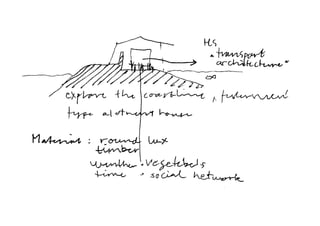 "transport
architecture"
∞
explore the coastline,
type allotment house
Material: round
timber
weather • vegetebels
time • social network